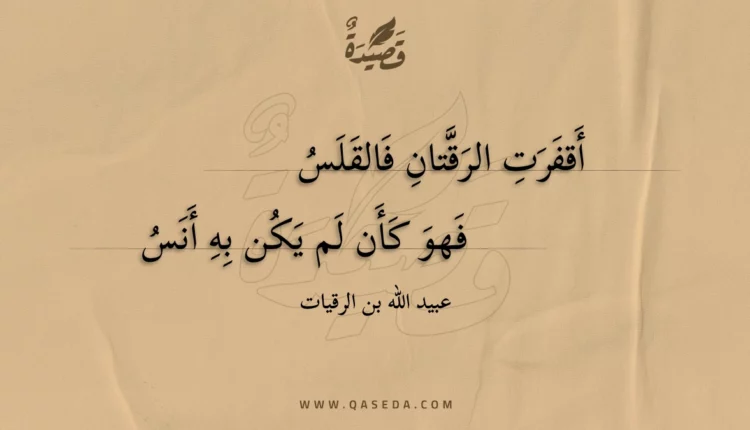 قَصِيْدَةٌ
أَقفَرَتِ الرَقَّتانِ فَالقَلَسُ
فَهوَ كَأَن لَم يَكُن بِهِ أَنَسُ
عبيد الله بن الرقيات
WWW.QASEDA.COM